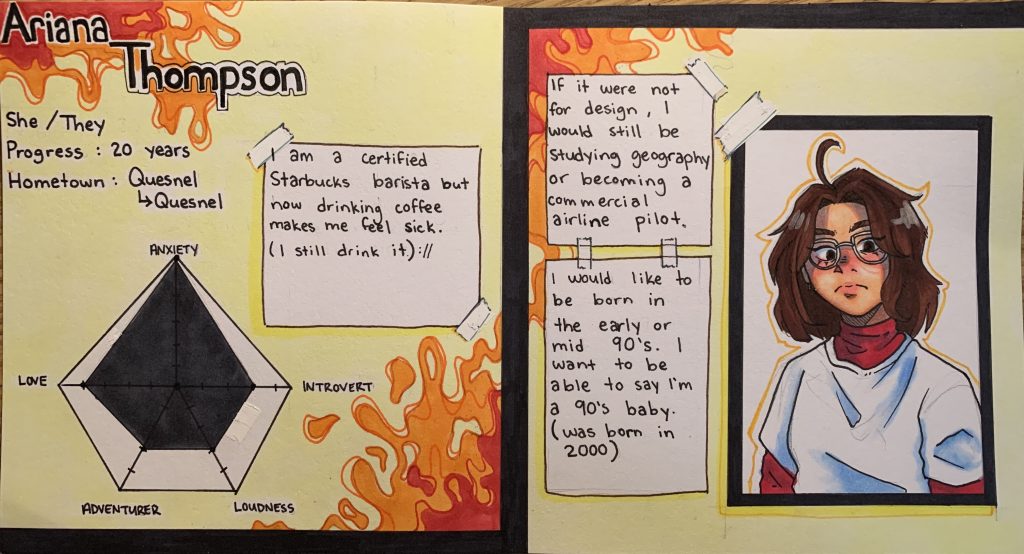 Ariana
Thompson
She / They
Progress : 20 years
Hometown : Quesnel
↳Quesnel
I am a certified
Starbucks barista but
now drinking coffee
makes me feel sick.
(I still drink it) ://
ANXIETY
LOVE
INTROVERT
ADVENTURER
LOUDNESS
If it were not
for design, I
would still be
studying geography
or becoming a
commercial
airline pilot.
I would like to
be born in
the early or
mid 90's. I
want to be
able to say I'm
a 90's baby.
(was born in
2000)